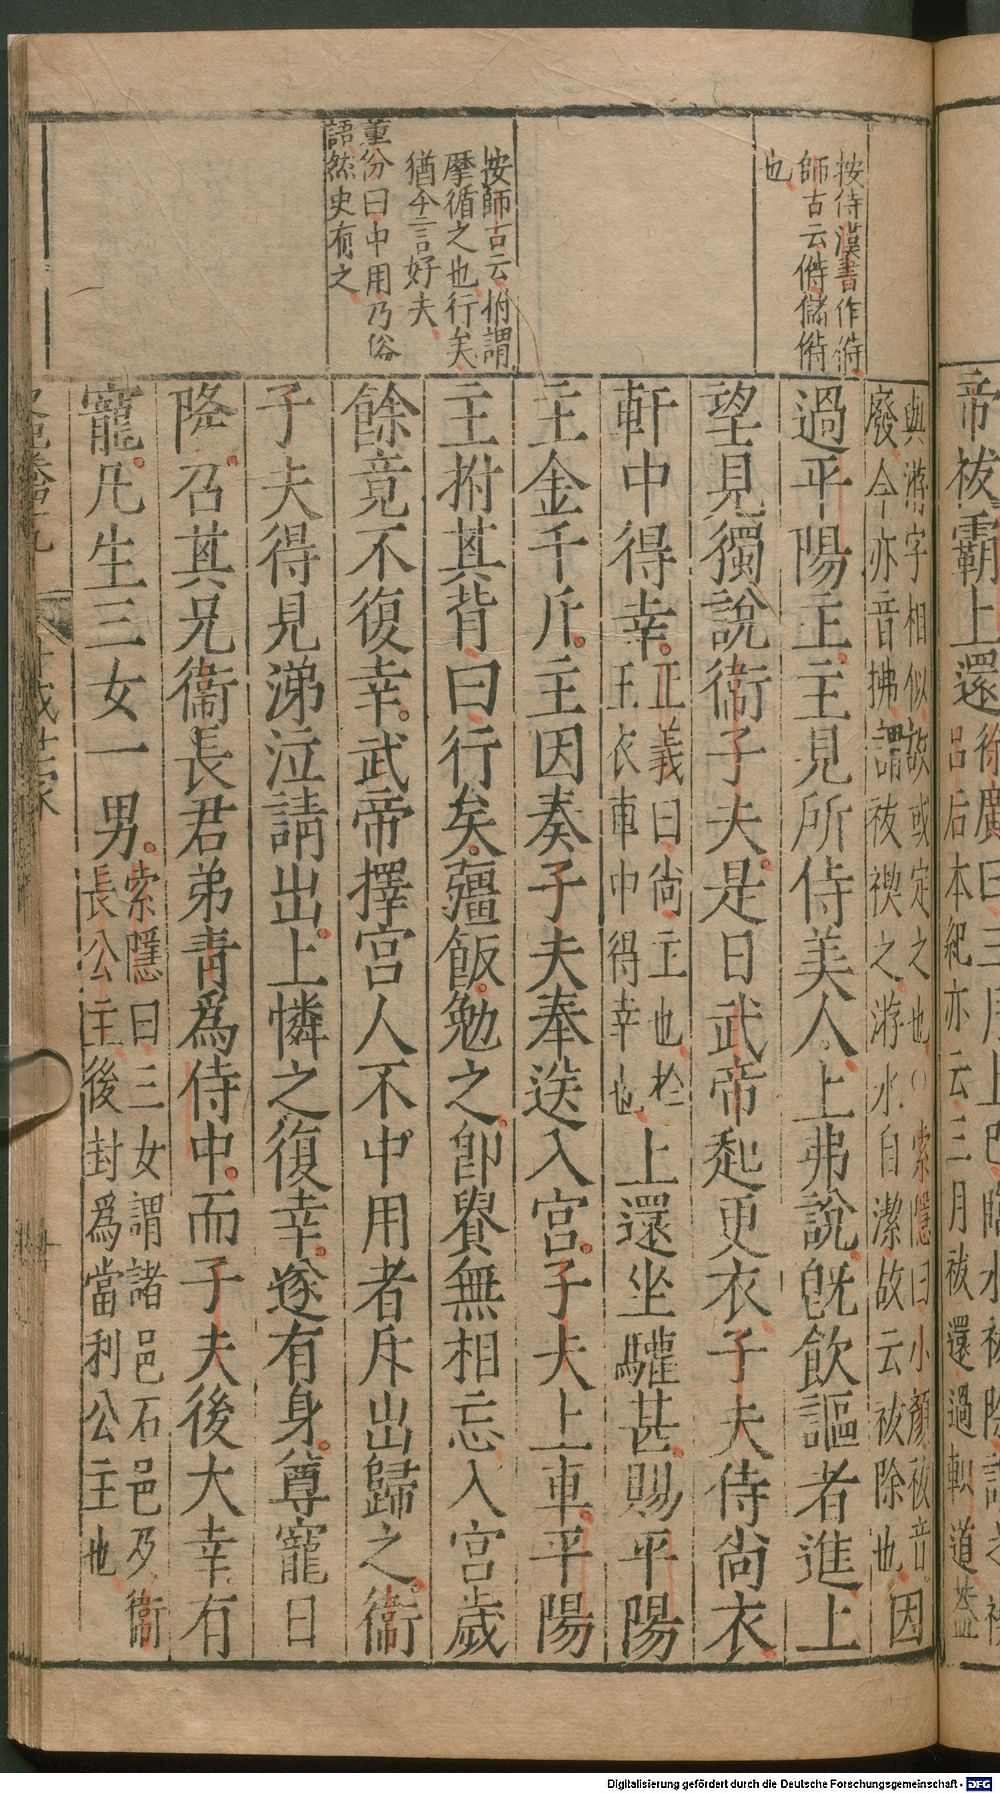 按侍漢書作偫
師古云偫儲偫
也
按師古云拊謂
摩循之也行矣
猶今言好夫
董份曰中用乃俗
語然史有之
帝祓霸上還
呂后本紀亦云三月祓還過軹道蓋
與游字相似故或定之也○索隱曰小顏祓音
廢今亦音拂謂祓禊之游水自潔故云祓除也因
過平陽主主見所侍美人上弗說旣飮謳者進上
望見獨說衞子夫是日武帝起更衣子夫侍尙衣
軒中得幸正義曰尙主也於
主衣車中得幸也上還坐驩甚賜平陽
主金千斤主因奏子夫奉送入宮子夫上車平陽
主拊其背曰行矣彊飯勉之卽貴無相忘入宮歲
餘竟不復幸武帝擇宮人不中用者斥出歸之衞
子夫得見涕泣請出上憐之復幸遂有身尊寵日
隆召其兄衞長君弟靑爲侍中而子夫後大幸有
寵凡生三女一男索隱曰三女謂諸邑石邑乃衞
長公主後封爲當利公主也
Digitalisierung gefördert durch die Deutsche Forschungsgemeinschaft - DFG